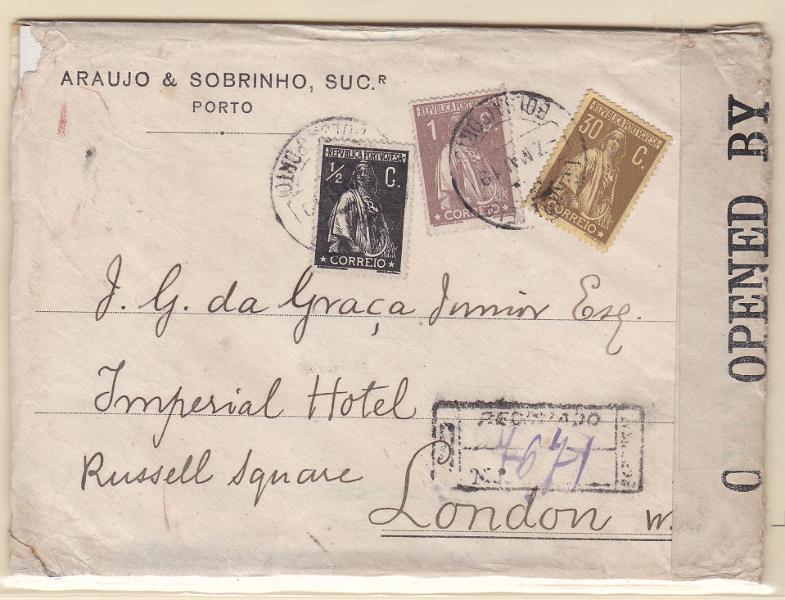 ARAUJO & SOBRINHO, SUC.R
PORTO
REPUBLICA PORTUGUESA
1/2 C.
CORREIO
REPUBLICA PORTUGUESA
1 C.
CORREIO
REPUBLICA PORTUGUESA
30 C.
CORREIO
J. G. da Graça Junior Esq.
Imperial Hotel
Russell Square
London W.
REGISTADO
N.
OPENED BY